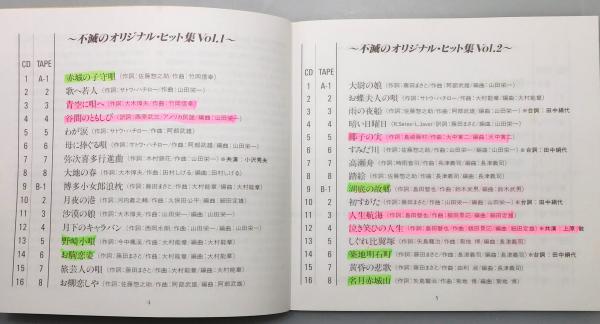 ～不滅のオリジナル・ヒット集Vol.1～
CD TAPE
1 A-1 赤城の子守唄(作詞:佐藤惣之助/作曲:竹岡信幸)
2 2 歌へ若人(作詞:サトウ・ハチロー/作曲:山田栄一)
3 3 青空に唄へ(作詞:大木惇夫/作曲:竹岡信幸)
4 4 谷間のともしび(訳詞:西原武三/アメリカ民謡/編曲:山田栄一)
5 5 わが涙(作詞:サトウ・ハチロー/作曲:阿部武雄)
6 6 母に捧ぐる唄(作詞:サトウ・ハチロー/作曲:阿部武雄/編曲:山田栄一)
7 7 弥次喜多行進曲(作詞:木村錦花/作曲:山田栄一)※共演:小沢秀夫
8 8 大地の春(作詞:大木惇夫/作曲:田村しげる/編曲:田村しげる)
9 B-1 博多小女郎浪枕(作詞:藤田まさと/作曲:大村能章/編曲:大村能章)
10 2 月夜の港(作詞:河内嘉之輔/作曲:久保田公平/編曲:細田定雄)
11 3 沙漠の娘(作詞:大木惇夫/作曲:山田栄一/編曲:山田栄一)
12 4 月下のキャラバン(作詞:西岡水朗/作曲:山田栄一/編曲:山田栄一)
13 5 野崎小唄(作詞:今中楓溪/作曲:大村能章/編曲:大村能章)
14 6 お駒恋姿(作詞:藤田まさと/作曲:大村能章/編曲:大村能章)
15 7 旅芸人の唄(作詞:藤田まさと/作曲:大村能章/編曲:大村能章)
16 8 お柳恋しや(作詞:佐藤惣之助/作曲:阿部武雄/編曲:阿部武雄)
4
～不滅のオリジナル・ヒット集Vol.2～
CD TAPE
1 A-1 大尉の娘(作詞:藤田まさと/作曲:阿部武雄/編曲:山田栄一)
2 2 お蝶夫人の唄(作詞:サトウ・ハチロー/作曲:大村能章/編曲:大村能章)
3 3 雨の夜船(作詞:サトウ・ハチロー/作曲:山田栄一/編曲:山田栄一)※台詞:田中絹代
4 4 暗い日曜日(R.Seres・L.Javer/訳詞:藤田まさと/編曲:山田栄一)
5 5 椰子の実(作詞:島崎藤村/作曲:大中寅二/編曲:大中寅二)
6 6 すみだ川(作詞:佐藤惣之助/作曲:山田栄一/編曲:山田栄一)※台詞:田中絹代
7 7 高瀬舟(作詞:時雨音羽/作曲:長津義司/編曲:長津義司)
8 8 踏絵(作詞:佐藤惣之助/作曲:長津義司/編曲:長津義司)
9 B-1 湖底の故郷(作詞:島田磬也/作曲:鈴木武男/編曲:鈴木武男)
10 2 初すがた(作詞:藤田まさと/作曲:長津義司/編曲:長津義司)※台詞:田中絹代
11 3 人生航海(作詞:島田磬也/作曲:細田義勝/編曲:細田定雄)
12 4 泣き笑ひの人生(作詞:島田磬也/作曲:細田義勝/編曲:細田定雄)※共演:上原敏
13 5 しぐれ比翼塚(作詞:矢島寵児/作曲:菊地博/編曲:長津義司)
14 6 築地明石町(作詞:藤田まさと/作曲:長津義司/編曲:長津義司)※台詞:田中絹代
15 7 黄昏の悲歌(作詞:藤田まさと/作曲:由利淑/編曲:長津義司)
16 8 名月赤城山(作詞:矢島寵児/作曲:菊地博/編曲:菊地博)
5